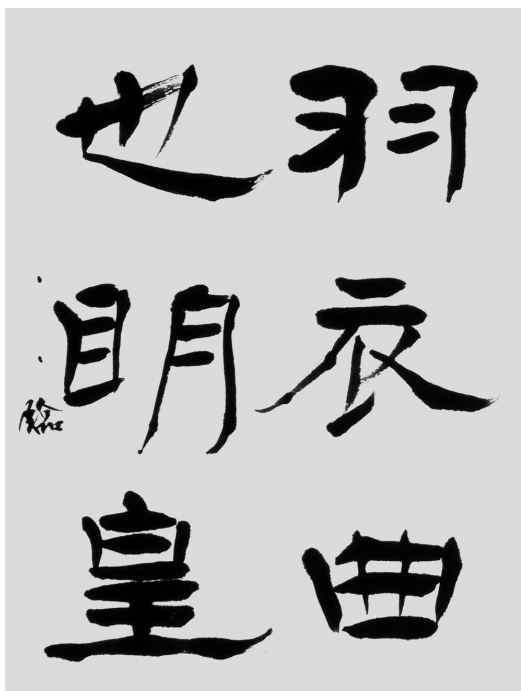 羽衣曲
也明皇